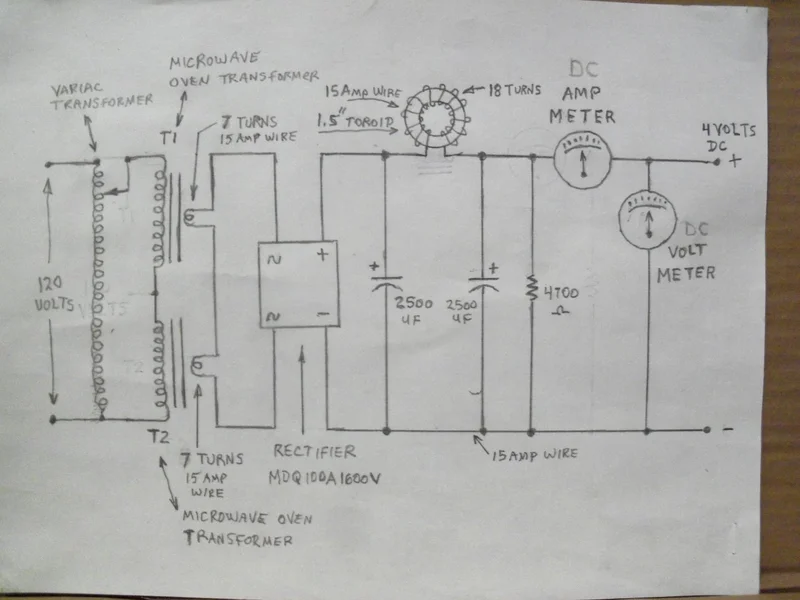 MICROWAVE
OVEN TRANSFORMER
VARIAC
TRANSFORMER
T1
7 TURNS
15 AMP WIRE
15 AMP WIRE
1.5" TOROID
18 TURNS
DC
AMP
METER
4 VOLTS
DC
+
DC
VOLT
METER
120
VOLTS
~ +
~ -
+
2500
UF
+
2500
UF
4700
Ω
-
T2
7 TURNS
15 AMP
WIRE
RECTIFIER
MDQ100A1600V
15 AMP WIRE
MICROWAVE OVEN
TRANSFORMER